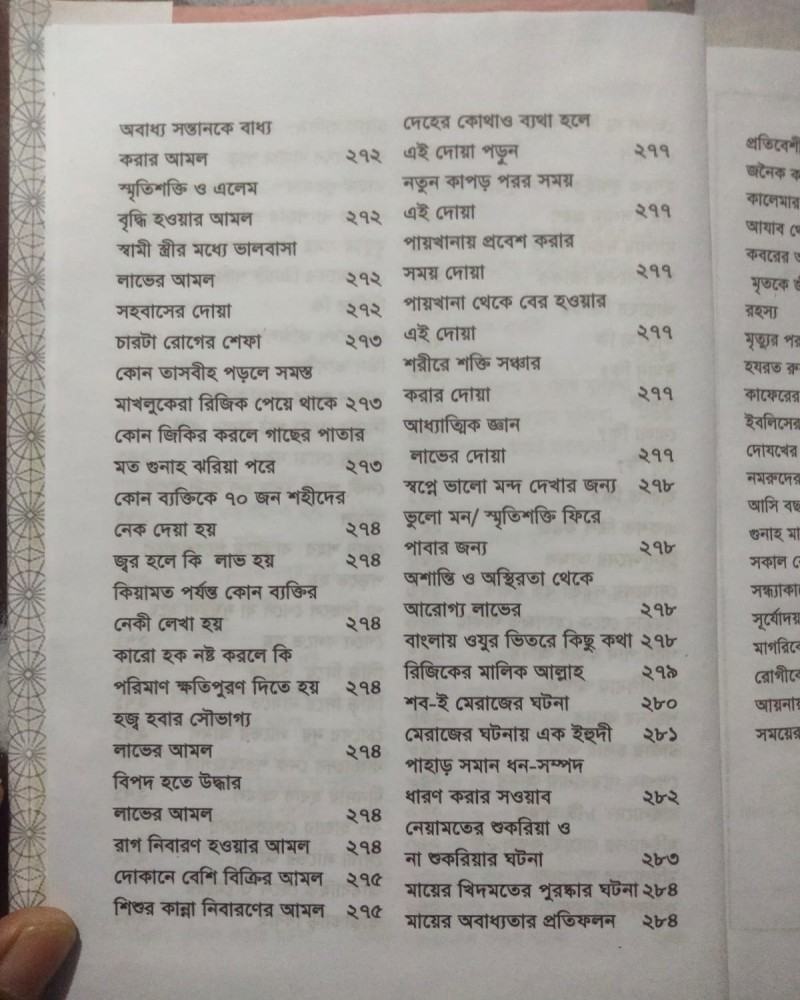 অবাধ্য সন্তানকে বাধ্য
করার আমল ২৭২
স্মৃতিশক্তি ও এলেম
বৃদ্ধি হওয়ার আমল ২৭২
স্বামী স্ত্রীর মধ্যে ভালবাসা
লাভের আমল ২৭২
সহবাসের দোয়া ২৭২
চারটা রোগের শেফা ২৭৩
কোন তাসবীহ পড়লে সমস্ত
মাখলুকেরা রিজিক পেয়ে থাকে ২৭৩
কোন জিকির করলে গাছের পাতার
মত গুনাহ ঝরিয়া পরে ২৭৩
কোন ব্যক্তিকে ৭০ জন শহীদের
নেক দেয়া হয় ২৭৪
জ্বর হলে কি লাভ হয় ২৭৪
কিয়ামত পর্যন্ত কোন ব্যক্তির
নেকী লেখা হয় ২৭৪
কারো হক নষ্ট করলে কি
পরিমাণ ক্ষতিপুরণ দিতে হয় ২৭৪
হজ্ব হবার সৌভাগ্য
লাভের আমল ২৭৪
বিপদ হতে উদ্ধার
লাভের আমল ২৭৪
রাগ নিবারণ হওয়ার আমল ২৭৪
দোকানে বেশি বিক্রির আমল ২৭৫
শিশুর কান্না নিবারণের আমল ২৭৫
দেহের কোথাও ব্যথা হলে
এই দোয়া পড়ুন ২৭৭
নতুন কাপড় পরর সময়
এই দোয়া ২৭৭
পায়খানায় প্রবেশ করার
সময় দোয়া ২৭৭
পায়খানা থেকে বের হওয়ার
এই দোয়া ২৭৭
শরীরে শক্তি সঞ্চার
করার দোয়া ২৭৭
আধ্যাত্মিক জ্ঞান
লাভের দোয়া ২৭৭
স্বপ্নে ভালো মন্দ দেখার জন্য ২৭৮
ভুলো মন/ স্মৃতিশক্তি ফিরে
পাবার জন্য ২৭৮
অশান্তি ও অস্থিরতা থেকে
আরোগ্য লাভের ২৭৮
বাংলায় ওযুর ভিতরে কিছু কথা ২৭৮
রিজিকের মালিক আল্লাহ ২৭৯
শব-ই মেরাজের ঘটনা ২৮০
মেরাজের ঘটনায় এক ইহুদী ২৮১
পাহাড় সমান ধন-সম্পদ
ধারণ করার সওয়াব ২৮২
নেয়ামতের শুকরিয়া ও
না শুকরিয়ার ঘটনা ২৮৩
মায়ের খিদমতের পুরস্কার ঘটনা ২৮৪
মায়ের অবাধ্যতার প্রতিফলন ২৮৪
প্রতিবেশী
জনৈক
কালেমার
আযাব
কবরের
মৃতকে
রহস্য
মৃত্যুর পর
হযরত
কাফেরের
ইবলিসের
দোযখের
নমরুদের
আসি
গুনাহ
সকাল
সূর্যোদয়
সময়ের